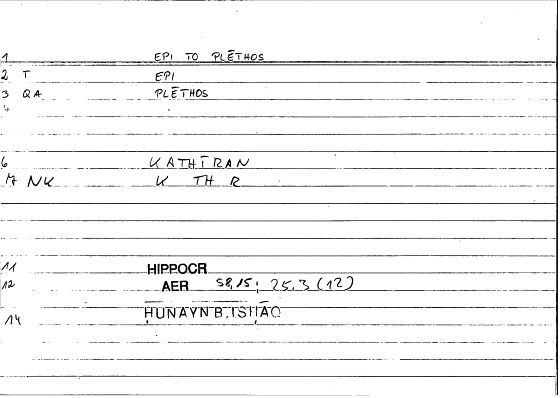 1 EPI TO PLĒTHOS
2 T EPI
3 QA PLĒTHOS
4
6 KATHĪRAN
17 NK K TH R
11 HIPPOCR
12 AER 58,15; 25.3 (12)
14 ḤUNAYN B. ISḤĀQ